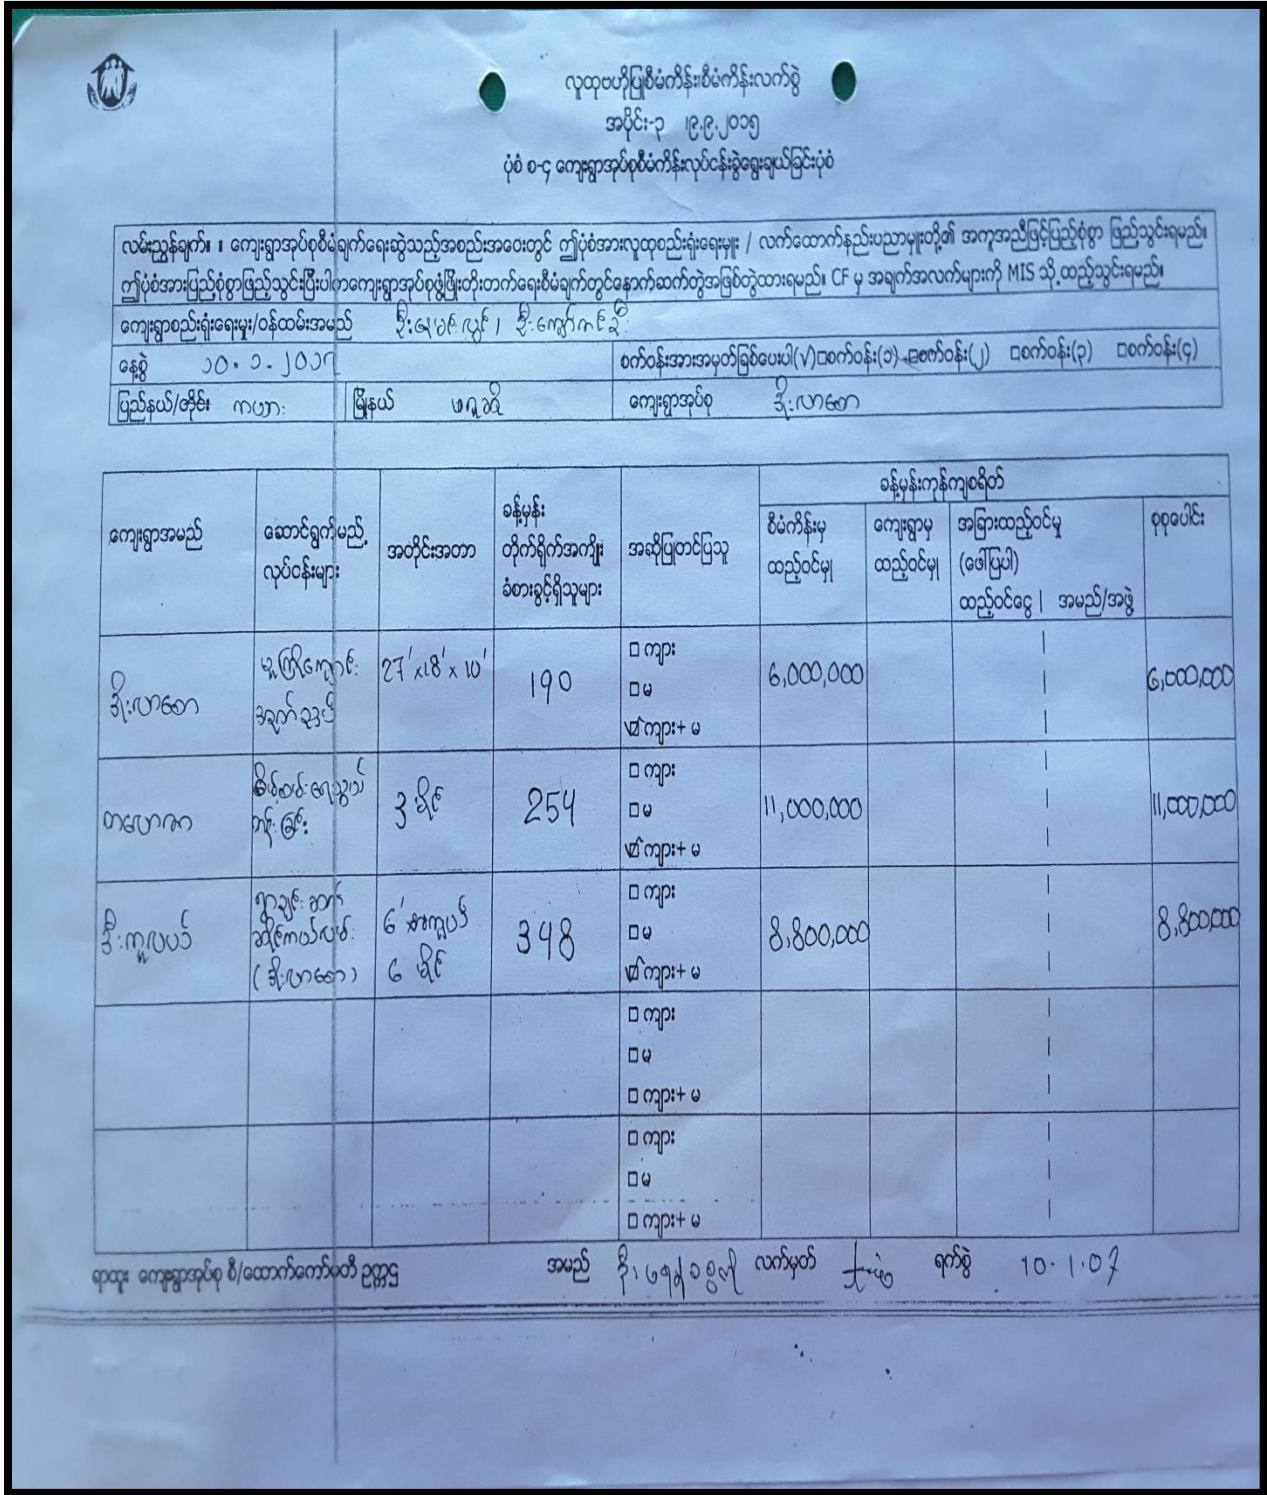 လူထုဗဟိုပြုစီမံကိန်း၊စီမံကိန်းလက်စွဲ
အပိုင်း-၃ ၊၉.၉.၂၀၁၅
ပုံစံ စ-၄ ကျေးရွာအုပ်စုစီမံကိန်းလုပ်ငန်းခွဲရွေးချယ်ခြင်းပုံစံ
လမ်းညွှန်ချက်။ ။ ကျေးရွာအုပ်စုစီမံချက်ရေးဆွဲသည့်အစည်းအဝေးတွင် ဤပုံစံအားလူထုစည်းရုံးရေးမှူး / လက်ထောက်နည်းပညာမှူးတို့၏ အကူအညီဖြင့်ပြည့်စုံစွာ ဖြည့်သွင်းရမည်။
ဤပုံစံအားပြည့်စုံစွာဖြည့်သွင်းပြီးပါကကျေးရွာအုပ်စုဖွံ့ဖြိုးတိုးတက်ရေးစီမံချက်တွင်နောက်ဆက်တွဲအဖြစ်တွဲထားရမည်။ CF မှ အချက်အလက်များကို MIS သို့ ထည့်သွင်းရမည်။
ကျေးရွာစည်းရုံးရေးမှူး/ဝန်ထမ်းအမည်
နေ့စွဲ ၁၀.၁.၂၀၁၇ စက်ဝန်းအားအမှတ်ခြစ်ပေးပါ(√)□စက်ဝန်း(၁) □စက်ဝန်း(၂) □စက်ဝန်း(၃) □စက်ဝန်း(၄)
ပြည်နယ်/တိုင်း ကယား မြို့နယ် ဖရူဆို ကျေးရွာအုပ်စု ဒိုးလာစော
ခန့်မှန်းကုန်ကျစရိတ်
ကျေးရွာအမည် ဆောင်ရွက်မည့် လုပ်ငန်းများ အတိုင်းအတာ ခန့်မှန်း တိုက်ရိုက်အကျိုး ခံစားခွင့်ရှိသူများ အဆိုပြုတင်ပြသူ စီမံကိန်းမှ ထည့်ဝင်မှု ကျေးရွာမှ ထည့်ဝင်မှု အခြားထည့်ဝင်မှု (ဖေါ်ပြပါ) ထည့်ဝင်ငွေ | အမည်/အဖွဲ့ စုစုပေါင်း
□ ကျား
ဒိုးလာစော မူကြိုကျောင်း 27'x18'x10' 190 □ မ 6,000,000 6,000,000
☑ ကျား+ မ
□ ကျား
3 မိုင် 254 □ မ 11,000,000 11,000,000
☑ ကျား+ မ
□ ကျား
ဆိုင်ကယ်လမ်း (ဒိုးလာစော) 6 မိုင် 348 □ မ 8,800,000 8,800,000
☑ ကျား+ မ
□ ကျား
□ မ
□ ကျား+ မ
□ ကျား
□ မ
□ ကျား+ မ
ရာထူး ကျေးရွာအုပ်စု စီ/ထောက်ကော်မတီ ဥက္ကဋ္ဌ အမည် လက်မှတ် ရက်စွဲ 10.1.07